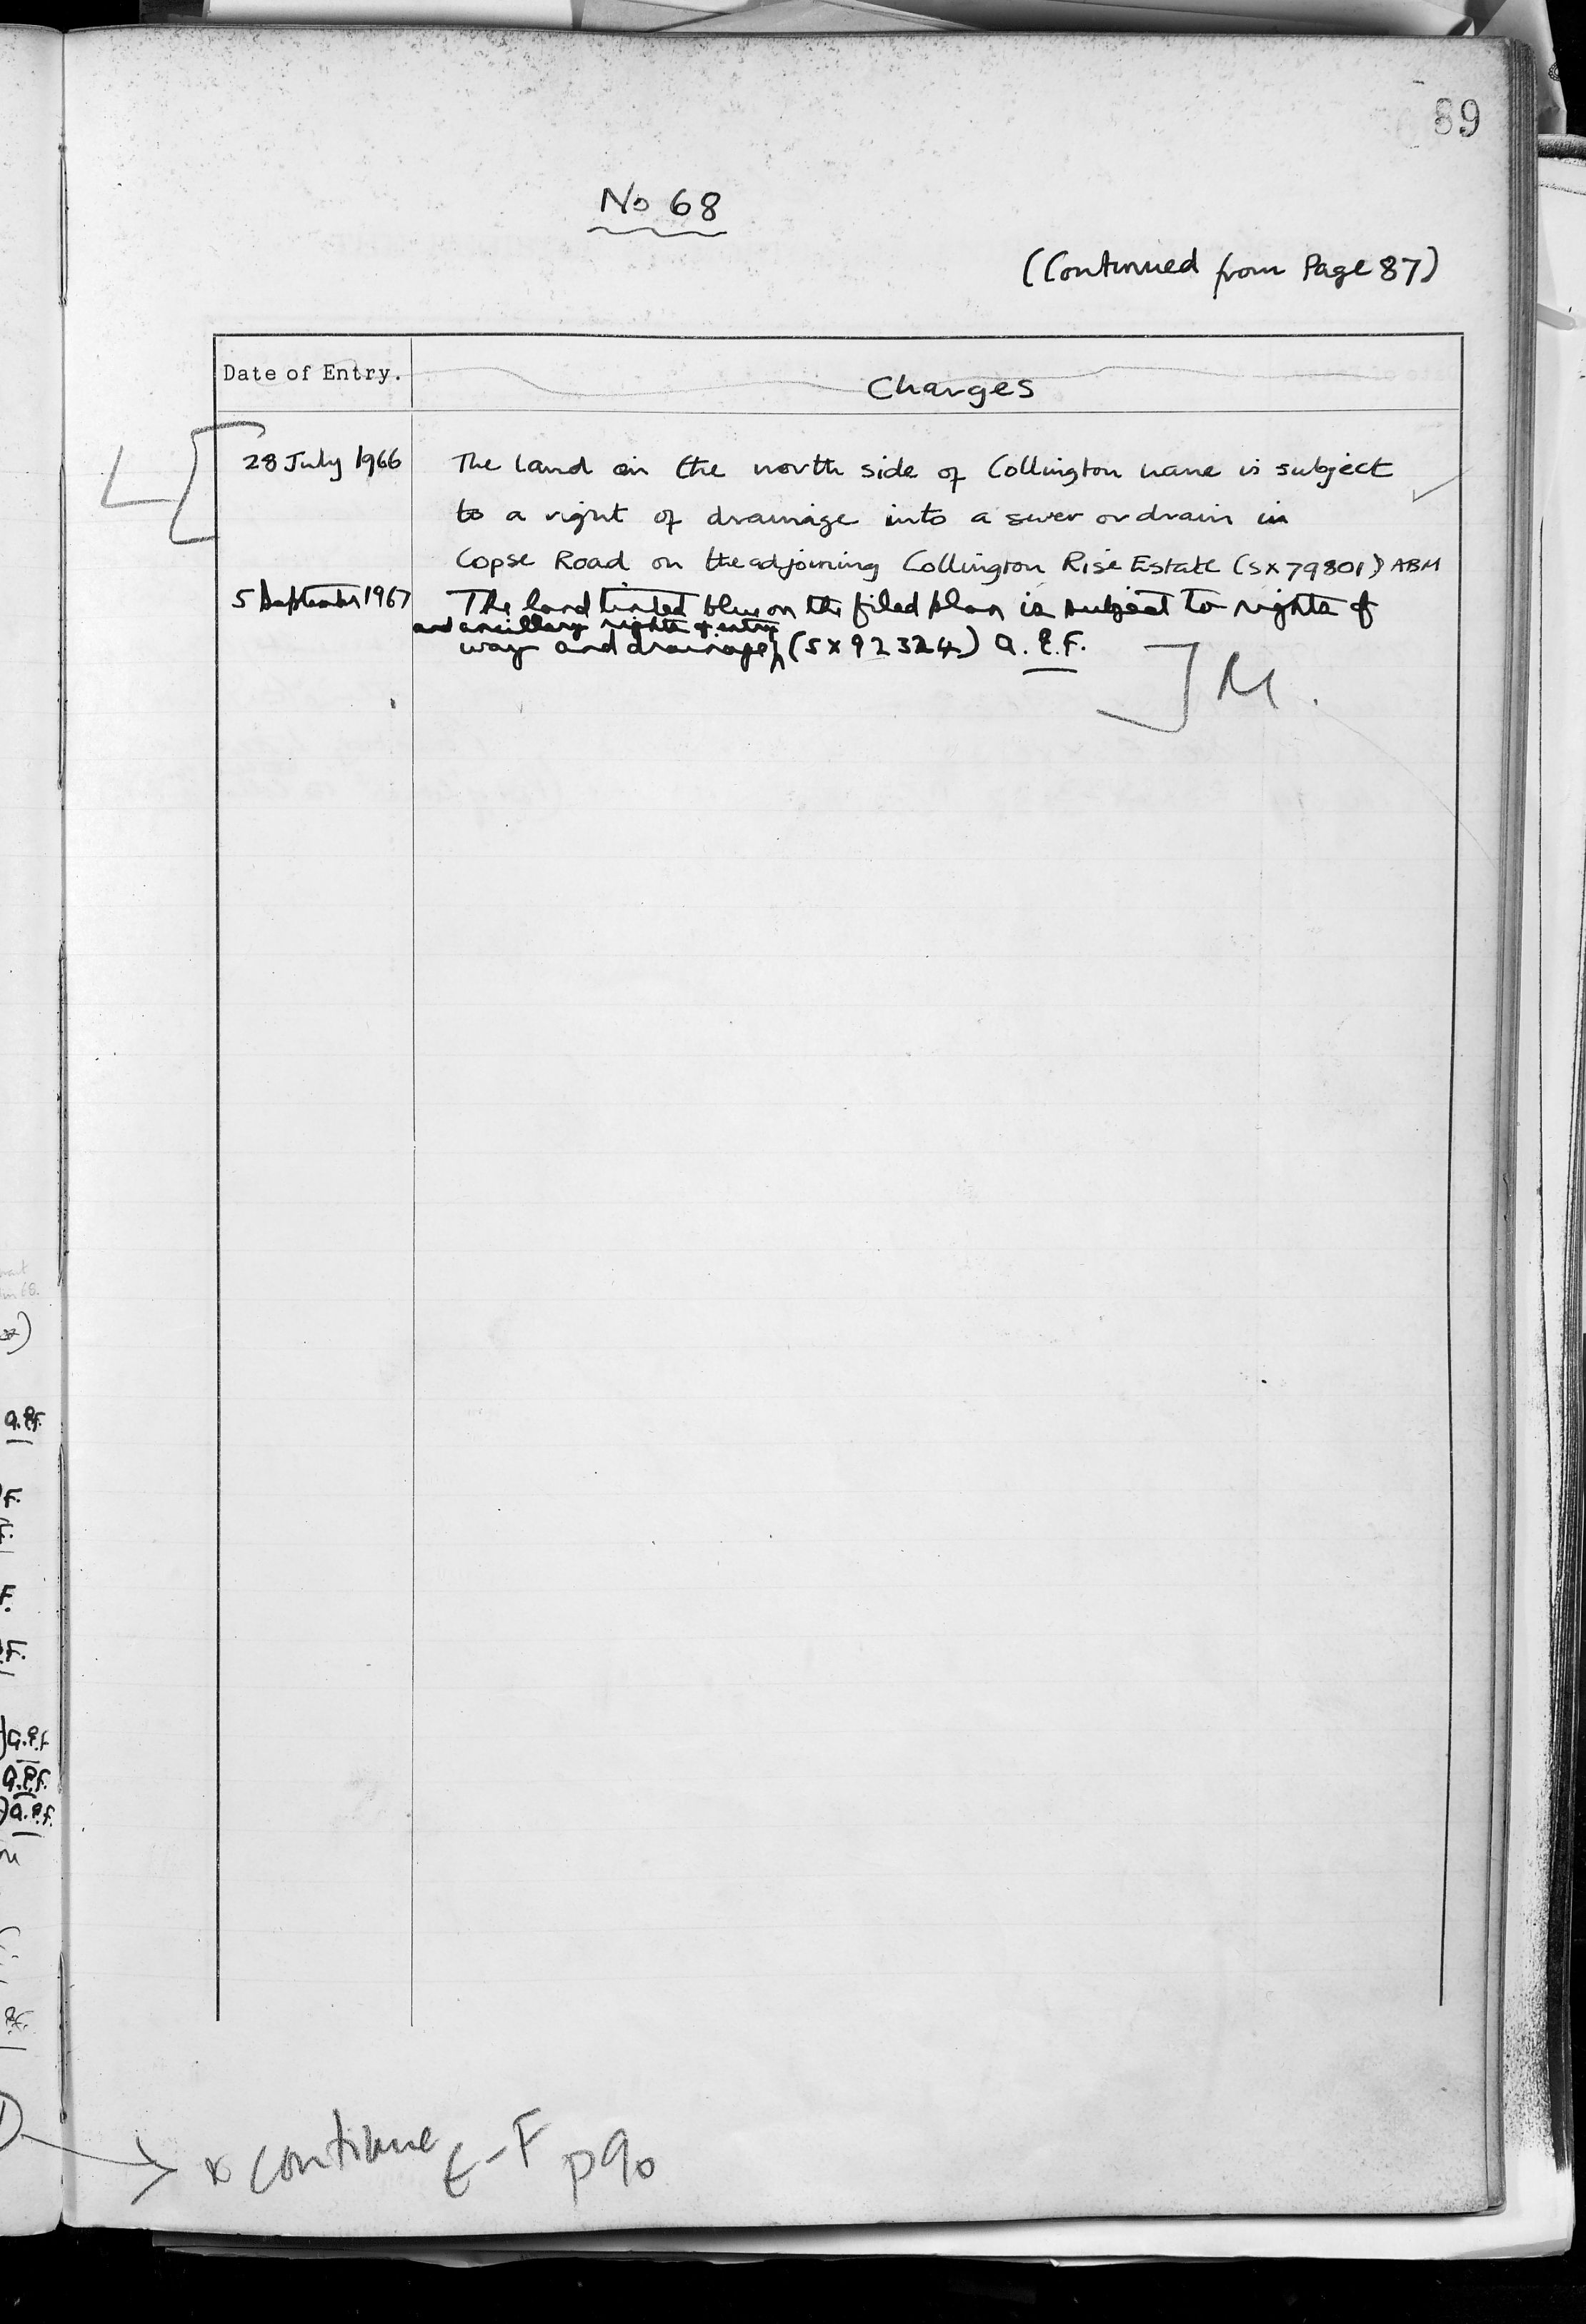 89
No 68
(Continued from Page 87)
Date of Entry.
Charges
28 July 1966
The land on the north side of Collington Lane is subject
to a right of drainage into a sewer or drain in
Copse Road on the adjoining Collington Rise Estate (SX79801) ABM
5 September 1967
The land tinted blue on the filed plan is subject to rights of
and ancillary rights of entry
way and drainage (SX92324) A.P.F.
L
] M.
x continue E-F p90
a.P.F.
F.
F.
F.
.F.
a.P.F
a.P.F.
a.P.F.
P.F.